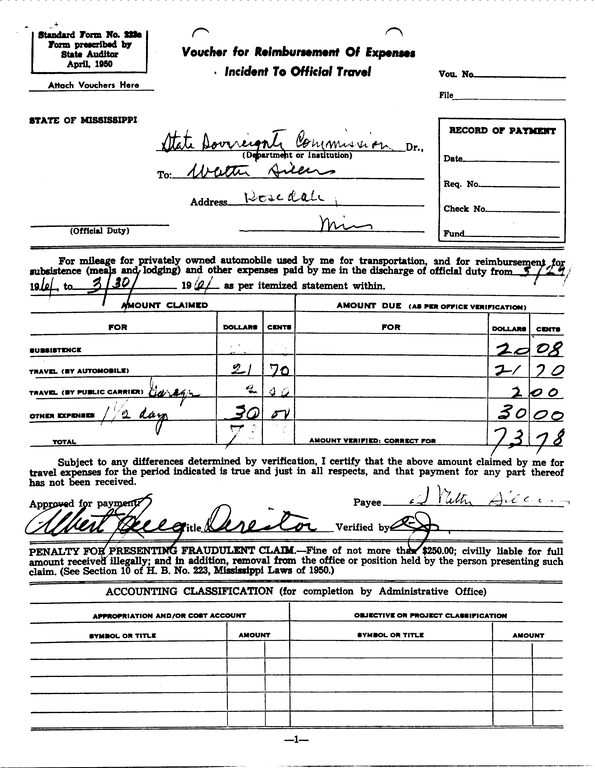 Standard Form No. 223a
Form prescribed by
State Auditor
April, 1950
Attach Vouchers Here
Voucher for Reimbursement Of Expenses
Incident To Official Travel
Vou. No.
File
STATE OF MISSISSIPPI
State Sovereignty Commission Dr.,
(Department or Institution)
To: Walter
Address Rosedale,
Miss
(Official Duty)
RECORD OF PAYMENT
Date
Req. No.
Check No.
Fund
For mileage for privately owned automobile used by me for transportation, and for reimbursement for
subsistence (meals and lodging) and other expenses paid by me in the discharge of official duty from 3/29/
1961, to 3/30/ 1961 as per itemized statement within.
AMOUNT CLAIMED AMOUNT DUE (AS PER OFFICE VERIFICATION)
FOR DOLLARS CENTS FOR DOLLARS CENTS
SUBSISTENCE 20 08
TRAVEL (BY AUTOMOBILE) 21 70 21 70
TRAVEL (BY PUBLIC CARRIER) Garage 2 00 2 00
OTHER EXPENSES 1 1/2 day 30 00 30 00
TOTAL 7 AMOUNT VERIFIED: CORRECT FOR 73 78
Subject to any differences determined by verification, I certify that the above amount claimed by me for
travel expenses for the period indicated is true and just in all respects, and that payment for any part thereof
has not been received.
Approved for payment Payee Walter
Albert Title Director Verified by
PENALTY FOR PRESENTING FRAUDULENT CLAIM.—Fine of not more than $250.00; civilly liable for full
amount received illegally; and in addition, removal from the office or position held by the person presenting such
claim. (See Section 10 of H. B. No. 223, Mississippi Laws of 1950.)
ACCOUNTING CLASSIFICATION (for completion by Administrative Office)
APPROPRIATION AND/OR COST ACCOUNT OBJECTIVE OR PROJECT CLASSIFICATION
SYMBOL OR TITLE AMOUNT SYMBOL OR TITLE AMOUNT
—1—